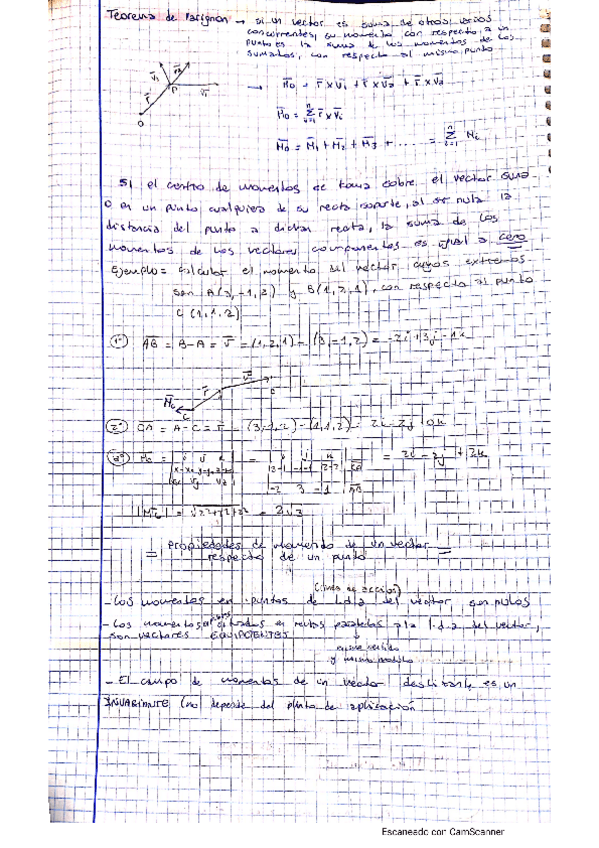 Teorema de Varignon → si un vector es suma de otros varios
concurrentes, su momento con respecto a un
punto es la suma de los momentos de los
sumandos, con respecto al mismo punto
→ M̄o = r̄ x V̄1 + r̄ x V̄2 + r̄ x V̄3
M̄o = Σ r̄ x V̄i
M̄o = M̄1 + M̄2 + M̄3 + ...... = Σ M̄i
Si el centro de momentos se toma sobre el vector suma
o en un punto cualquiera de su recta soporte, al ser nula la
distancia del punto a dicha recta, la suma de los
momentos de los vectores componentes es igual a cero
Ejemplo = Calcular el momento del vector cuyos extremos
son A(3,-1,2) y B(1,2,1), con respecto al punto
C(1,1,2)
1º AB = B-A = V̄ = (1,2,1) - (3,-1,2) = -2i + 3j - 1k
M̄c r̄ V̄
C
2º CA = A-C = r̄ = (3,-1,2) - (1,1,2) = 2i - 2j + 0k
3º = 2i - 2j + 2k
= 2√3
= Propiedades de momento de un vector =
respecto de un punto
(línea de acción)
- Los momentos en puntos de l.d.a del vector son nulos
- Los momentos situados en rectas paralelas a la l.d.a del vector,
son vectores EQUIPOLENTES
mismo sentido
y mismo módulo
- El campo de momentos de un vector deslizante es un
INVARIANTE (no depende del punto de aplicación
Escaneado con CamScanner